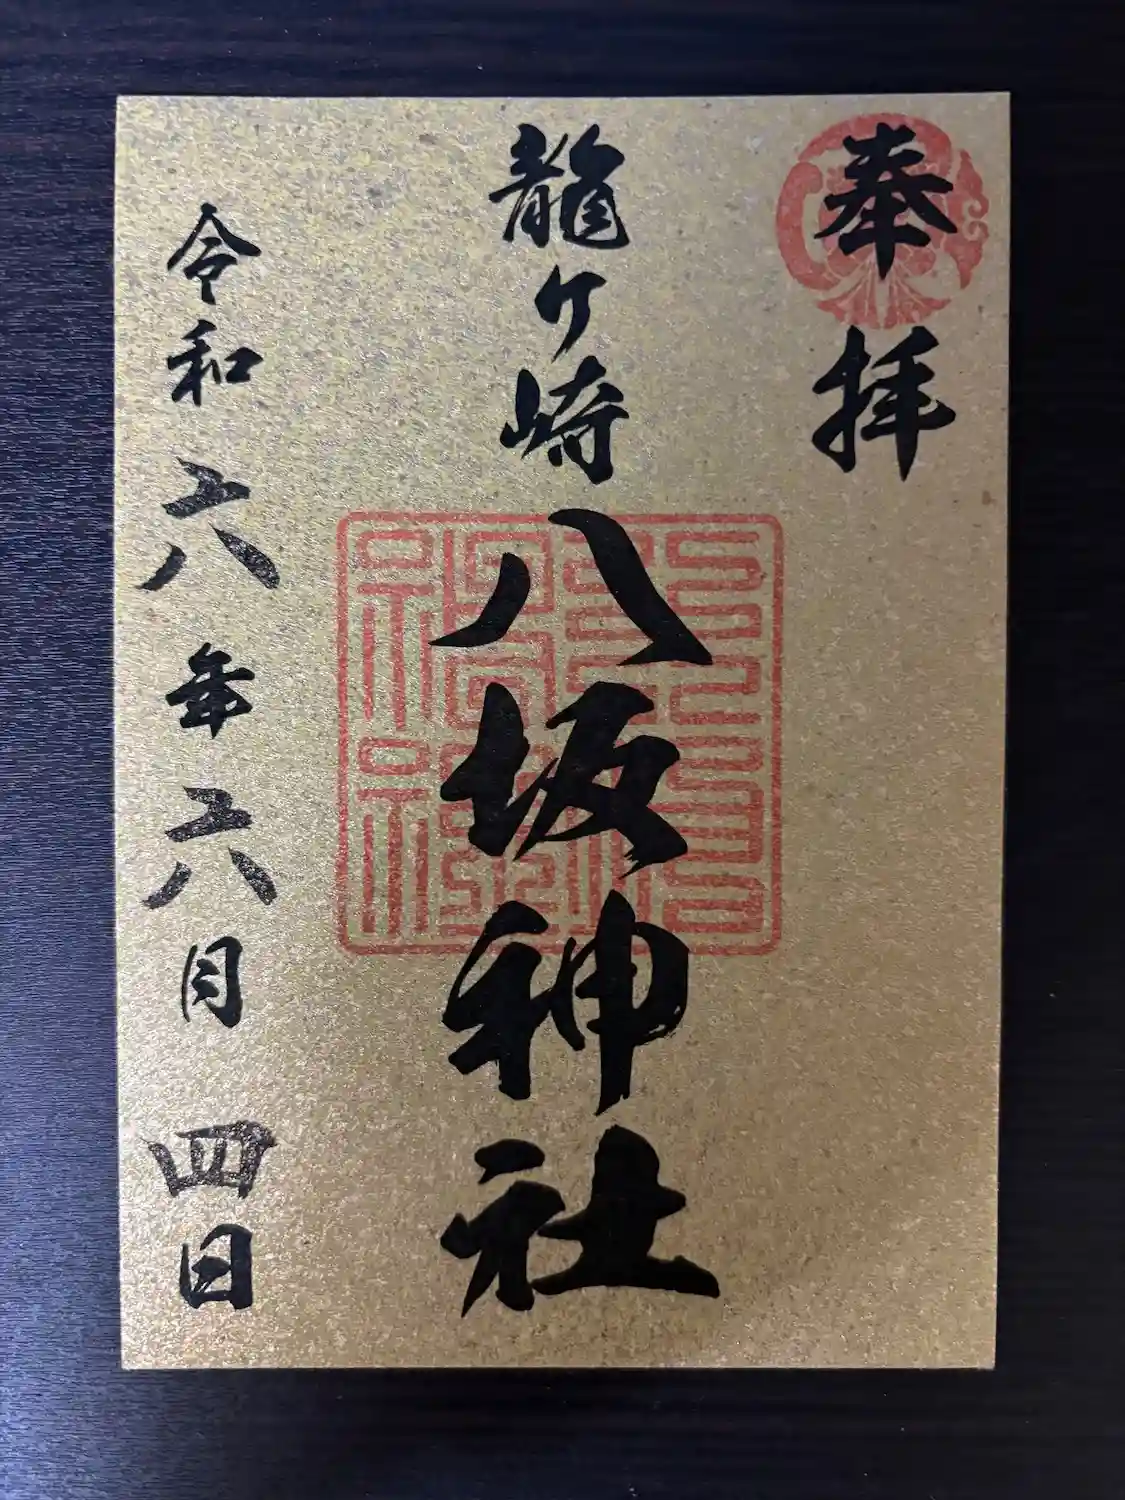 奉拝
龍ケ崎八坂神社
令和六年六月四日